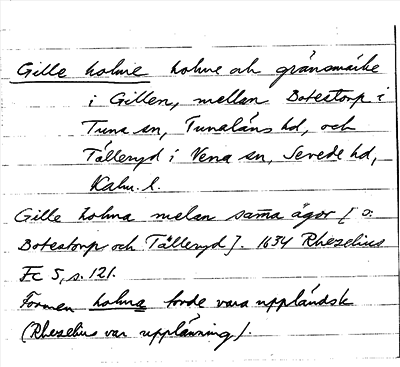 Gille holme holme och gränsmärke
i Gillen, mellan Botestorp i
Tuna sn, Tunaläns hd, och
Tälleryd i Vena sn, Sevede hd,
Kalm. l.
Gille holma melan sama ägor [ o:
Botestorp och Tälleryd]. 1634 Rhezelius
Fc 5, s. 121.
Formen holma torde vara uppländsk
(Rhezelius var upplänning).